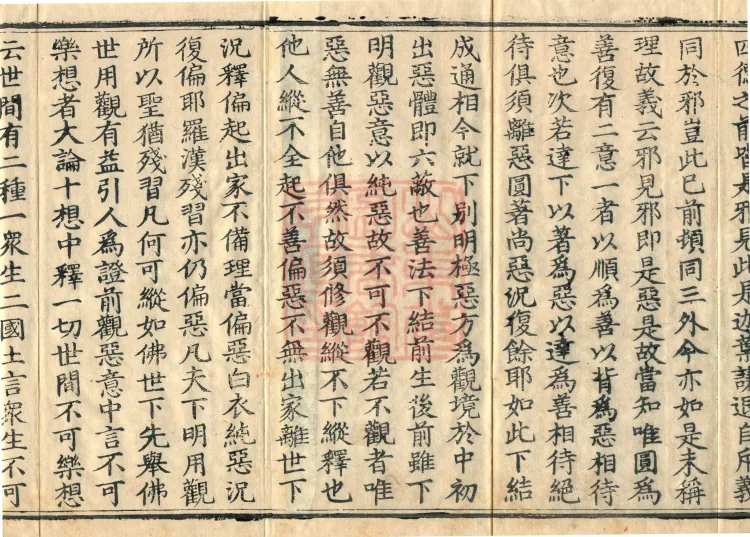 四德之旨皆是邪見此是迦葉謙退自斥義
同於邪豈此已前頓同三外今亦如是未稱
理故義云邪見邪即是惡是故當知唯圓為
善復有二意一者以順為善以背為惡相待
意也次若達下以著為惡以達為善相待絕
待俱須離惡圓著尚惡況復餘耶如此下結
成通相今就下別明極惡方為觀境於中初
出惡體即六蔽也善法下結前生後前雖下
明觀惡意以純惡故不可不觀若不觀者唯
惡無善自他俱然故須修觀縱不下縱釋也
他人縱不全起不善偏惡不無出家離世下
況釋偏起出家不備理當偏惡白衣純惡況
復偏耶羅漢殘習亦仍偏惡凡夫下明用觀
所以聖猶殘習凡何可縱如佛世下先舉佛
世用觀有益引人為證前觀惡意中言不可
樂想者大論十想中釋一切世間不可樂想
云世間有二種一眾生二國土言眾生不可